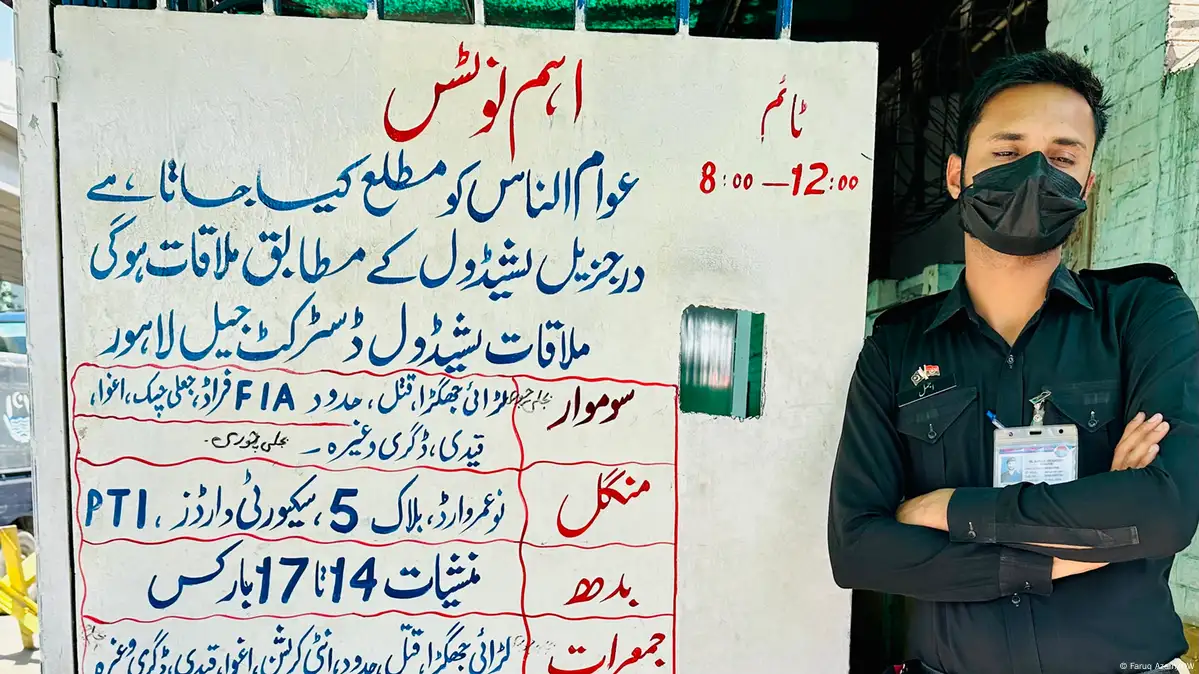 اہم نوٹس
ٹائم
8:00 — 12:00
عوام الناس کو مطلع کیا جاتا ہے
درجزیل شیڈول کے مطابق ملاقات ہوگی
ملاقات شیڈول ڈسٹرکٹ جیل لاہور
سوموار لڑائی جھگڑا، قتل، حدود FIA فراڈ، جعلی چیک، اغوا،
قیدی، ڈگری وغیرہ - بجلی چوری -
منگل نوعمر وارڈ، بلاک 5، سیکیورٹی وارڈز، PTI
بدھ منشیات 14 تا 17 بارکس
جمعرات لڑائی جھگڑا، قتل، حدود، انٹی کرپشن، اغوا، قیدی، ڈگری وغیرہ
© Faruq Azam/DW